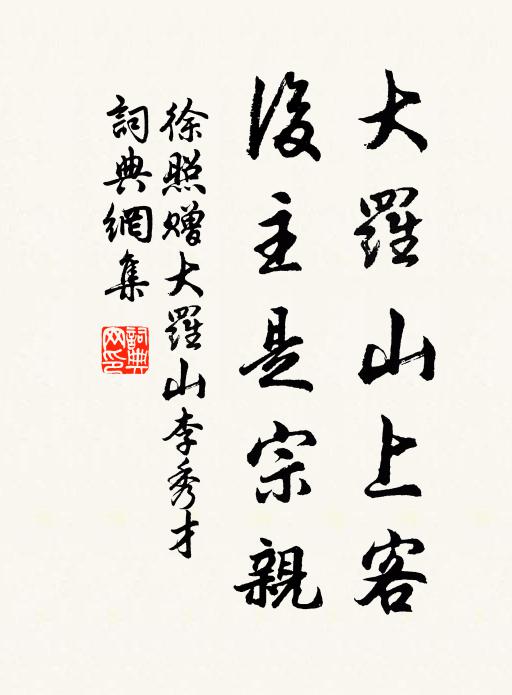 大羅山上客
後主是宗親
徐照贈大羅山李秀才
詞典網集
詞典网印